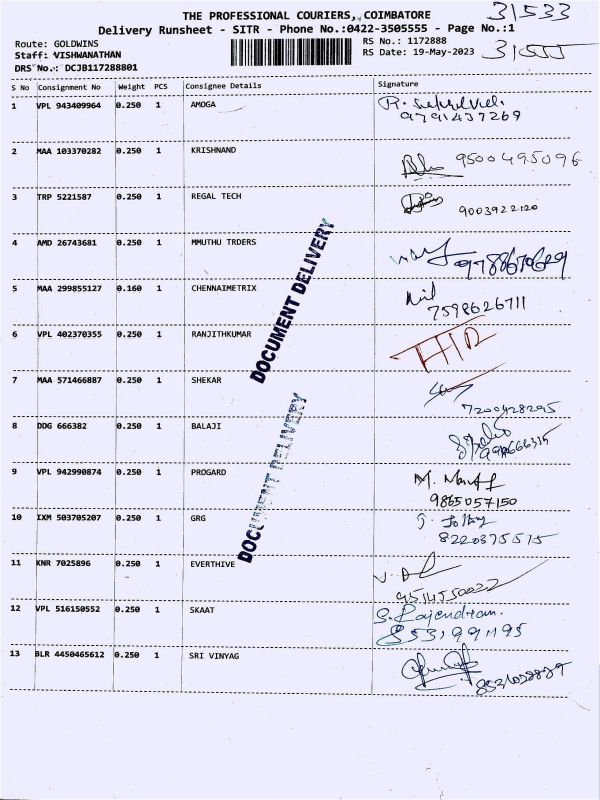 THE PROFESSIONAL COURIERS, COIMBATORE 31533
Delivery Runsheet - SITR - Phone No.:0422-3505555 - Page No.:1
Route: GOLDWINS RS No.: 1172888
Staff: VISHWANATHAN RS Date: 19-May-2023 31555
DRS No.: DCJB117288801
S No Consignment No Weight PCS Consignee Details Signature
1 VPL 943409964 0.250 1 AMOGA
9791437269
2 MAA 103370282 0.250 1 KRISHNAND 9500495096
3 TRP 5221587 0.250 1 REGAL TECH 9003922120
4 AMD 26743681 0.250 1 MMUTHU TRDERS
5 MAA 299855127 0.160 1 CHENNAIMETRIX
7598626711
6 VPL 402370355 0.250 1 RANJITHKUMAR
7 MAA 571466887 0.250 1 SHEKAR
7200428295
8 DDG 666382 0.250 1 BALAJI
9 VPL 942990874 0.250 1 PROGARD
9865057150
10 IXM 503705207 0.250 1 GRG
8220375515
11 KNR 7025896 0.250 1 EVERTHIVE
12 VPL 516150552 0.250 1 SKAAT S. Rajendran.
13 BLR 4450465612 0.250 1 SRI VINYAG
DOCUMENT DELIVERY
DOCUMENT DELIVERY